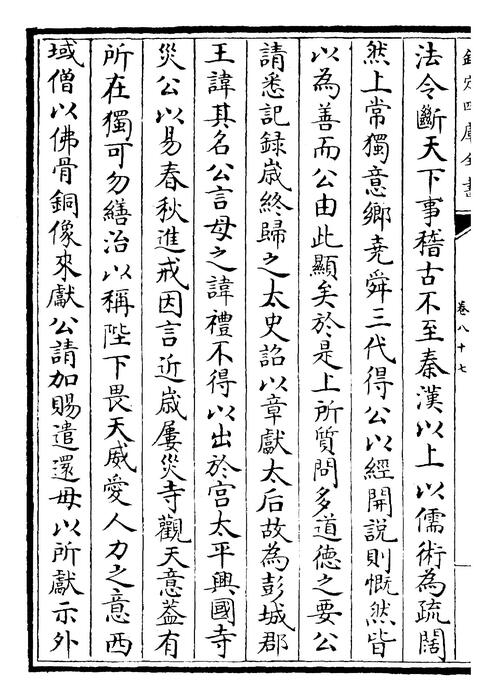 欽定四庫全書
卷八十七
法令斷天下事稽古不至秦漢以上以儒術為疏闊
然上常獨意鄉堯舜三代得公以經開説則慨然皆
以為善而公由此顯矣於是上所質問多道德之要公
請悉記録嵗終歸之太史詔以章獻太后故為彭城郡
王諱其名公言母之諱禮不得以出於宫太平興國寺
災公以易春秋進戒因言近嵗屢災寺觀天意葢有
所在獨可勿繕治以稱陛下畏天威愛人力之意西
域僧以佛骨銅像來獻公請加賜遣還毋以所獻示外